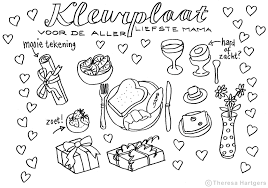 Kleurplaat
VOOR DE ALLER LIEFSTE MAMA
mooie tekening
hard of
zacht?
zoet!
© Theresa Hartgers